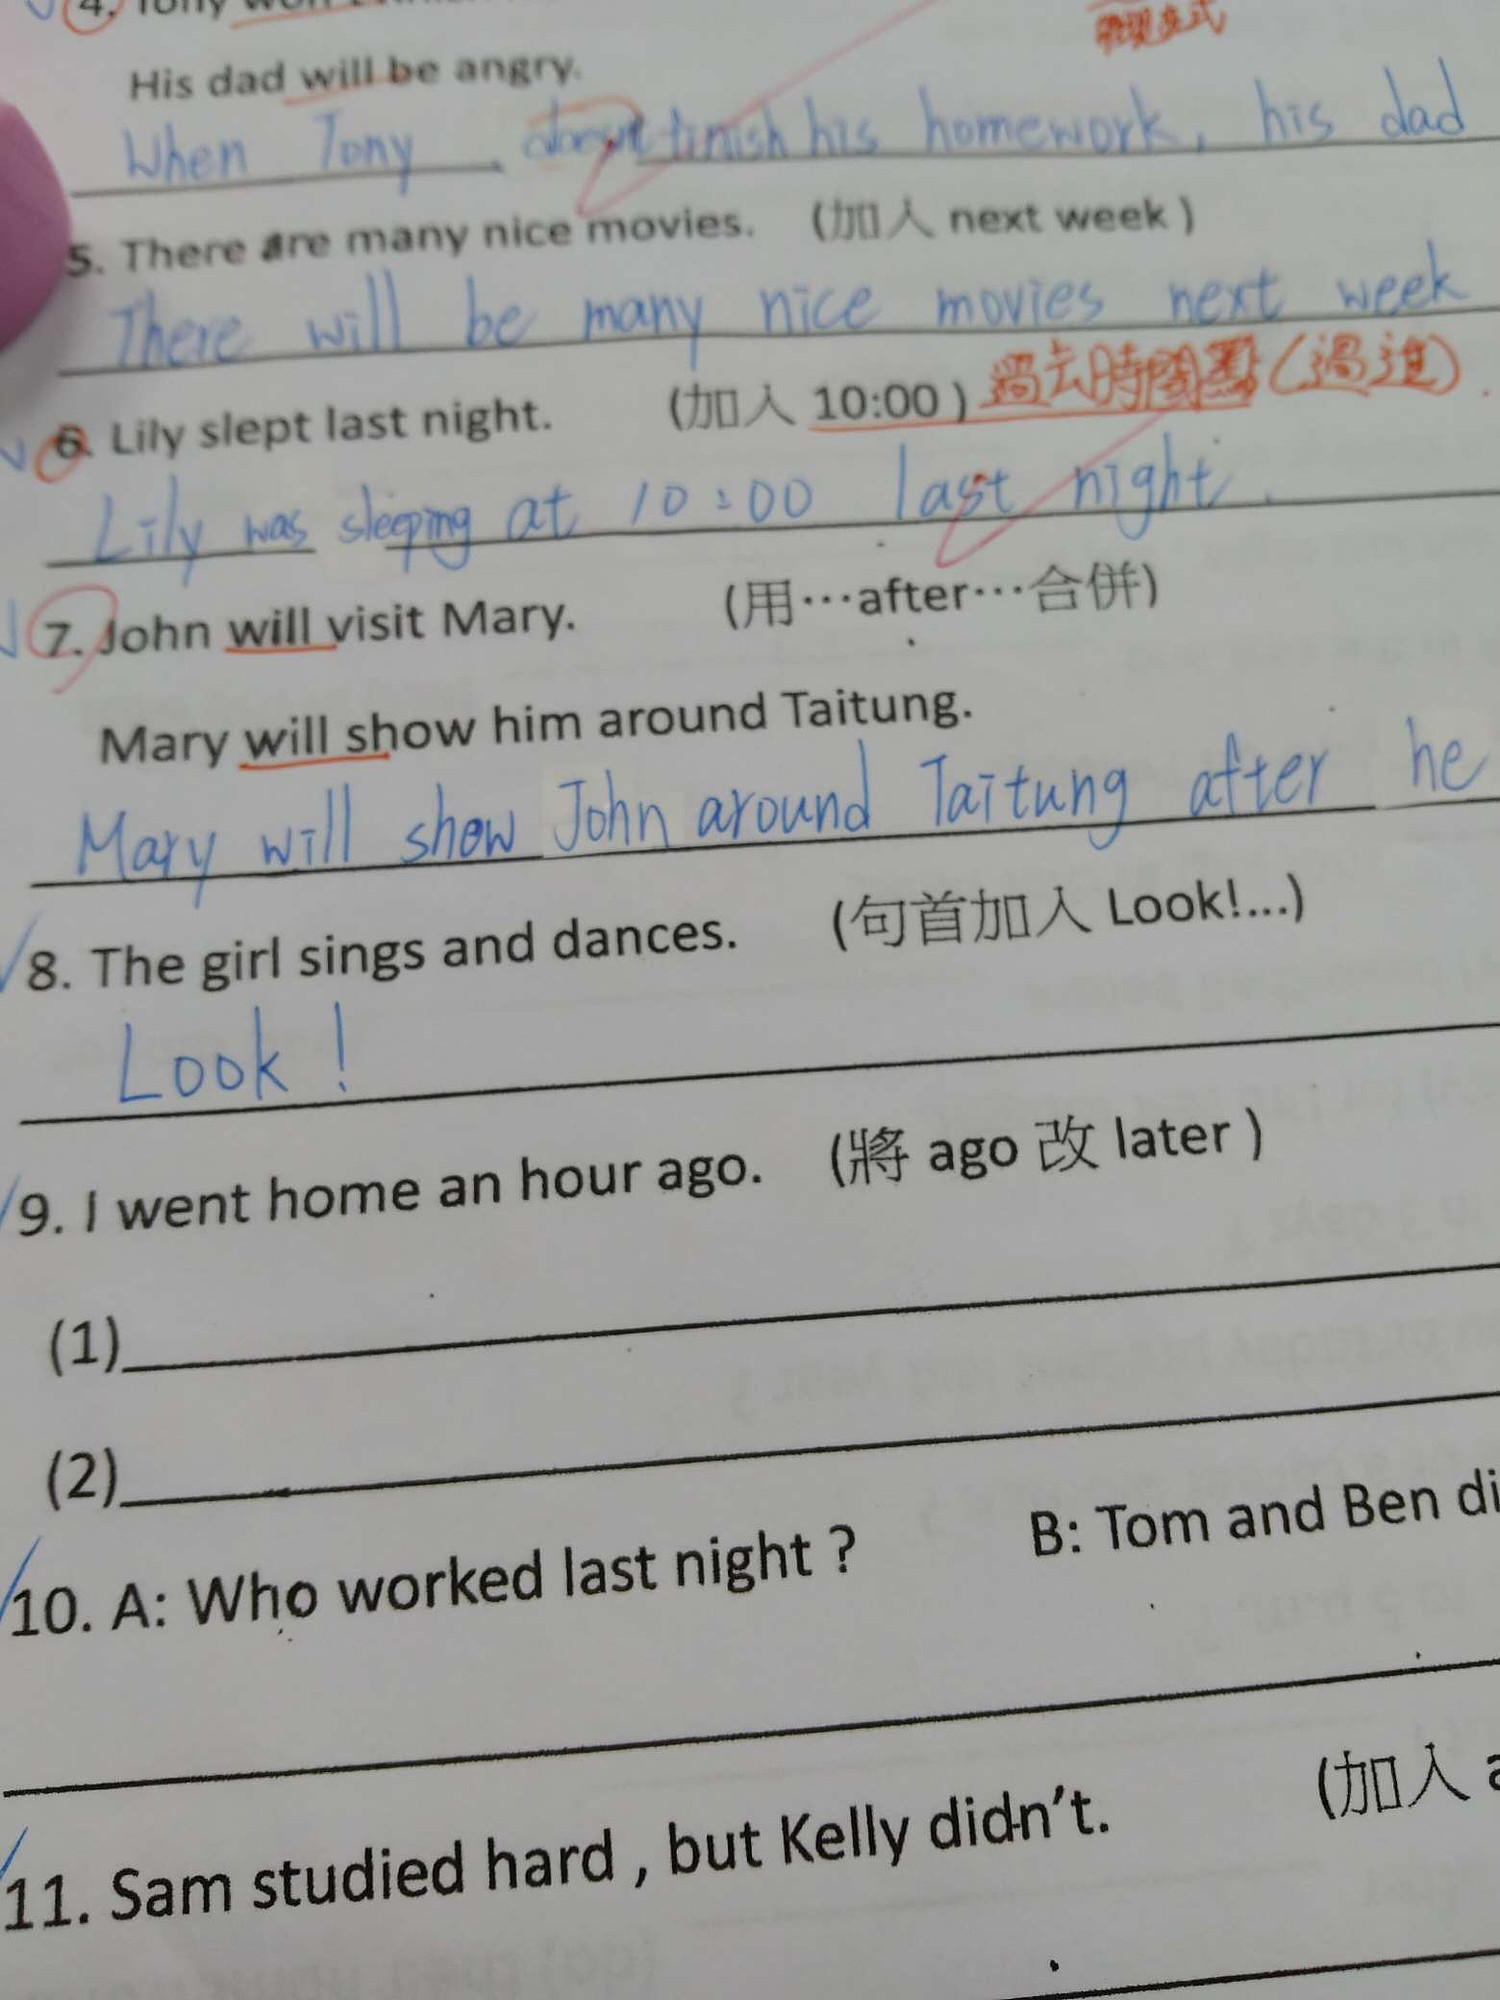 4. Tony won't finish
發現變式
His dad will be angry.
When Tony doesn't finish his homework, his dad
5. There are many nice movies. (加入 next week )
There will be many nice movies next week
6. Lily slept last night. (加入 10:00 ) 過去時間點(過進)
Lily was sleeping at 10:00 last night.
7. John will visit Mary. (用…after…合併)
Mary will show him around Taitung.
Mary will show John around Taitung after he
8. The girl sings and dances. (句首加入 Look!...)
Look!
9. I went home an hour ago. (將 ago 改 later )
(1)
(2)
10. A: Who worked last night ? B: Tom and Ben di
11. Sam studied hard , but Kelly didn't. (加入 a